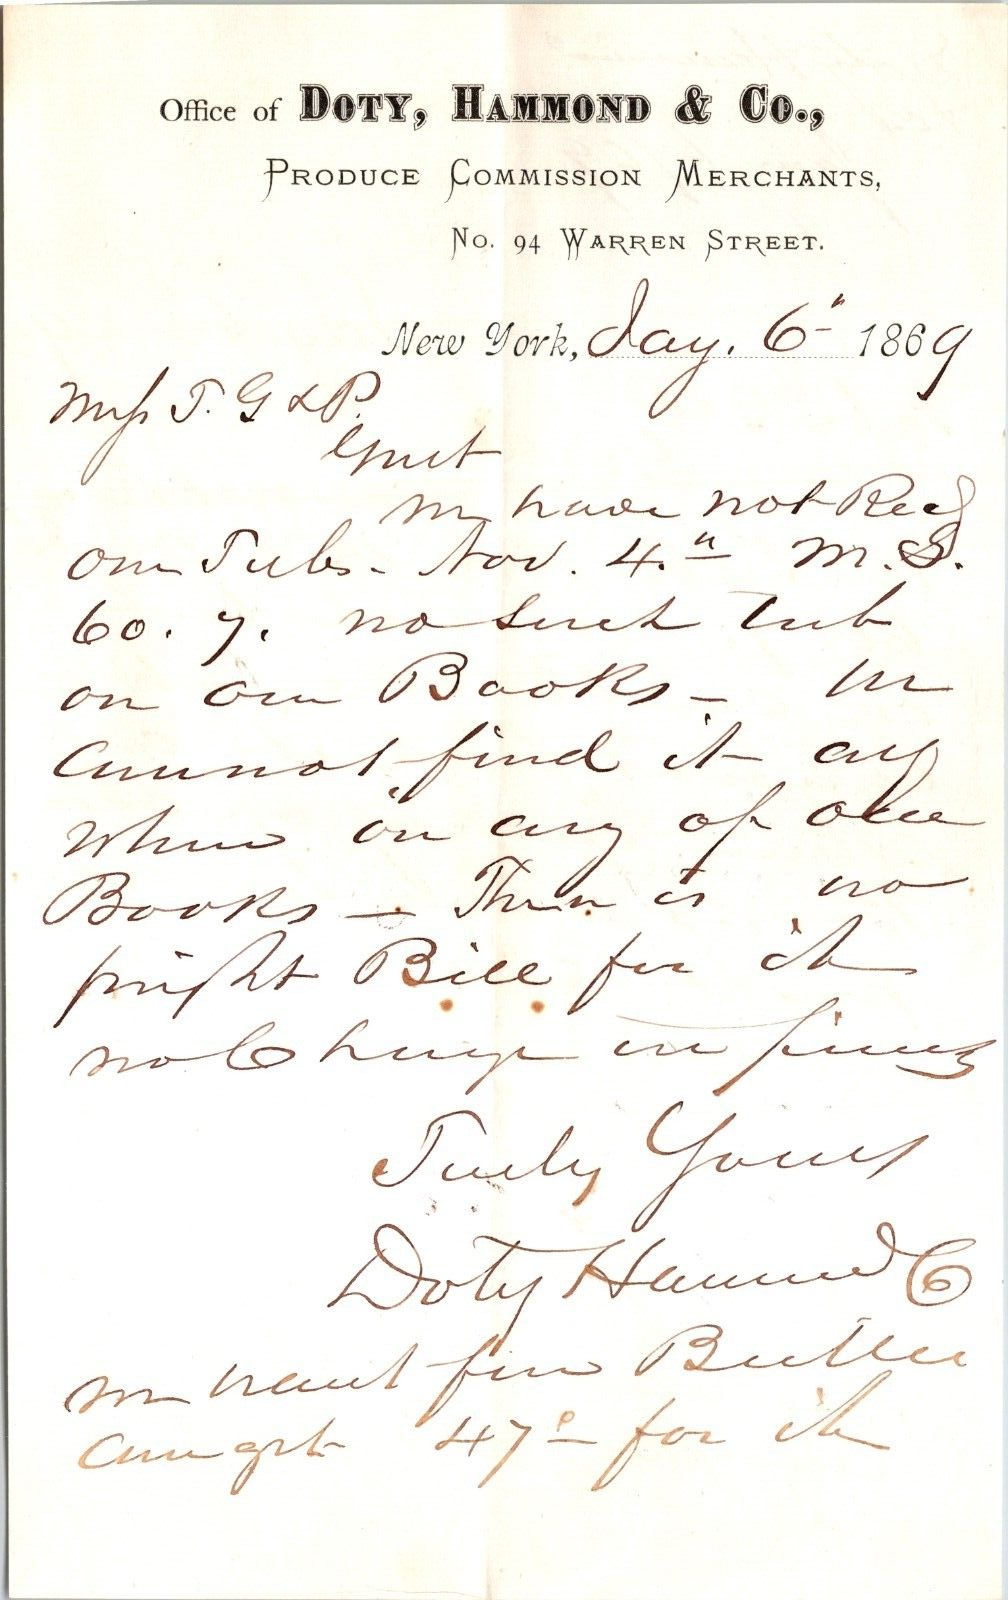 Office of Doty, Hammond & Co.,
Produce Commission Merchants,
No. 94 Warren Street.
New York, Jany. 6" 1869
Mess T. G & P.
Gent
We have not Recd
one Tub. Nov. 4" M. S.
60. 7. no such Tub
on our Books - We
cannot find it any
where on any of our
Books - There is no
freight Bill for it
no Change in prices
Truly Yours
Doty Hammond Co
We want fine Butter
can get 47c for it